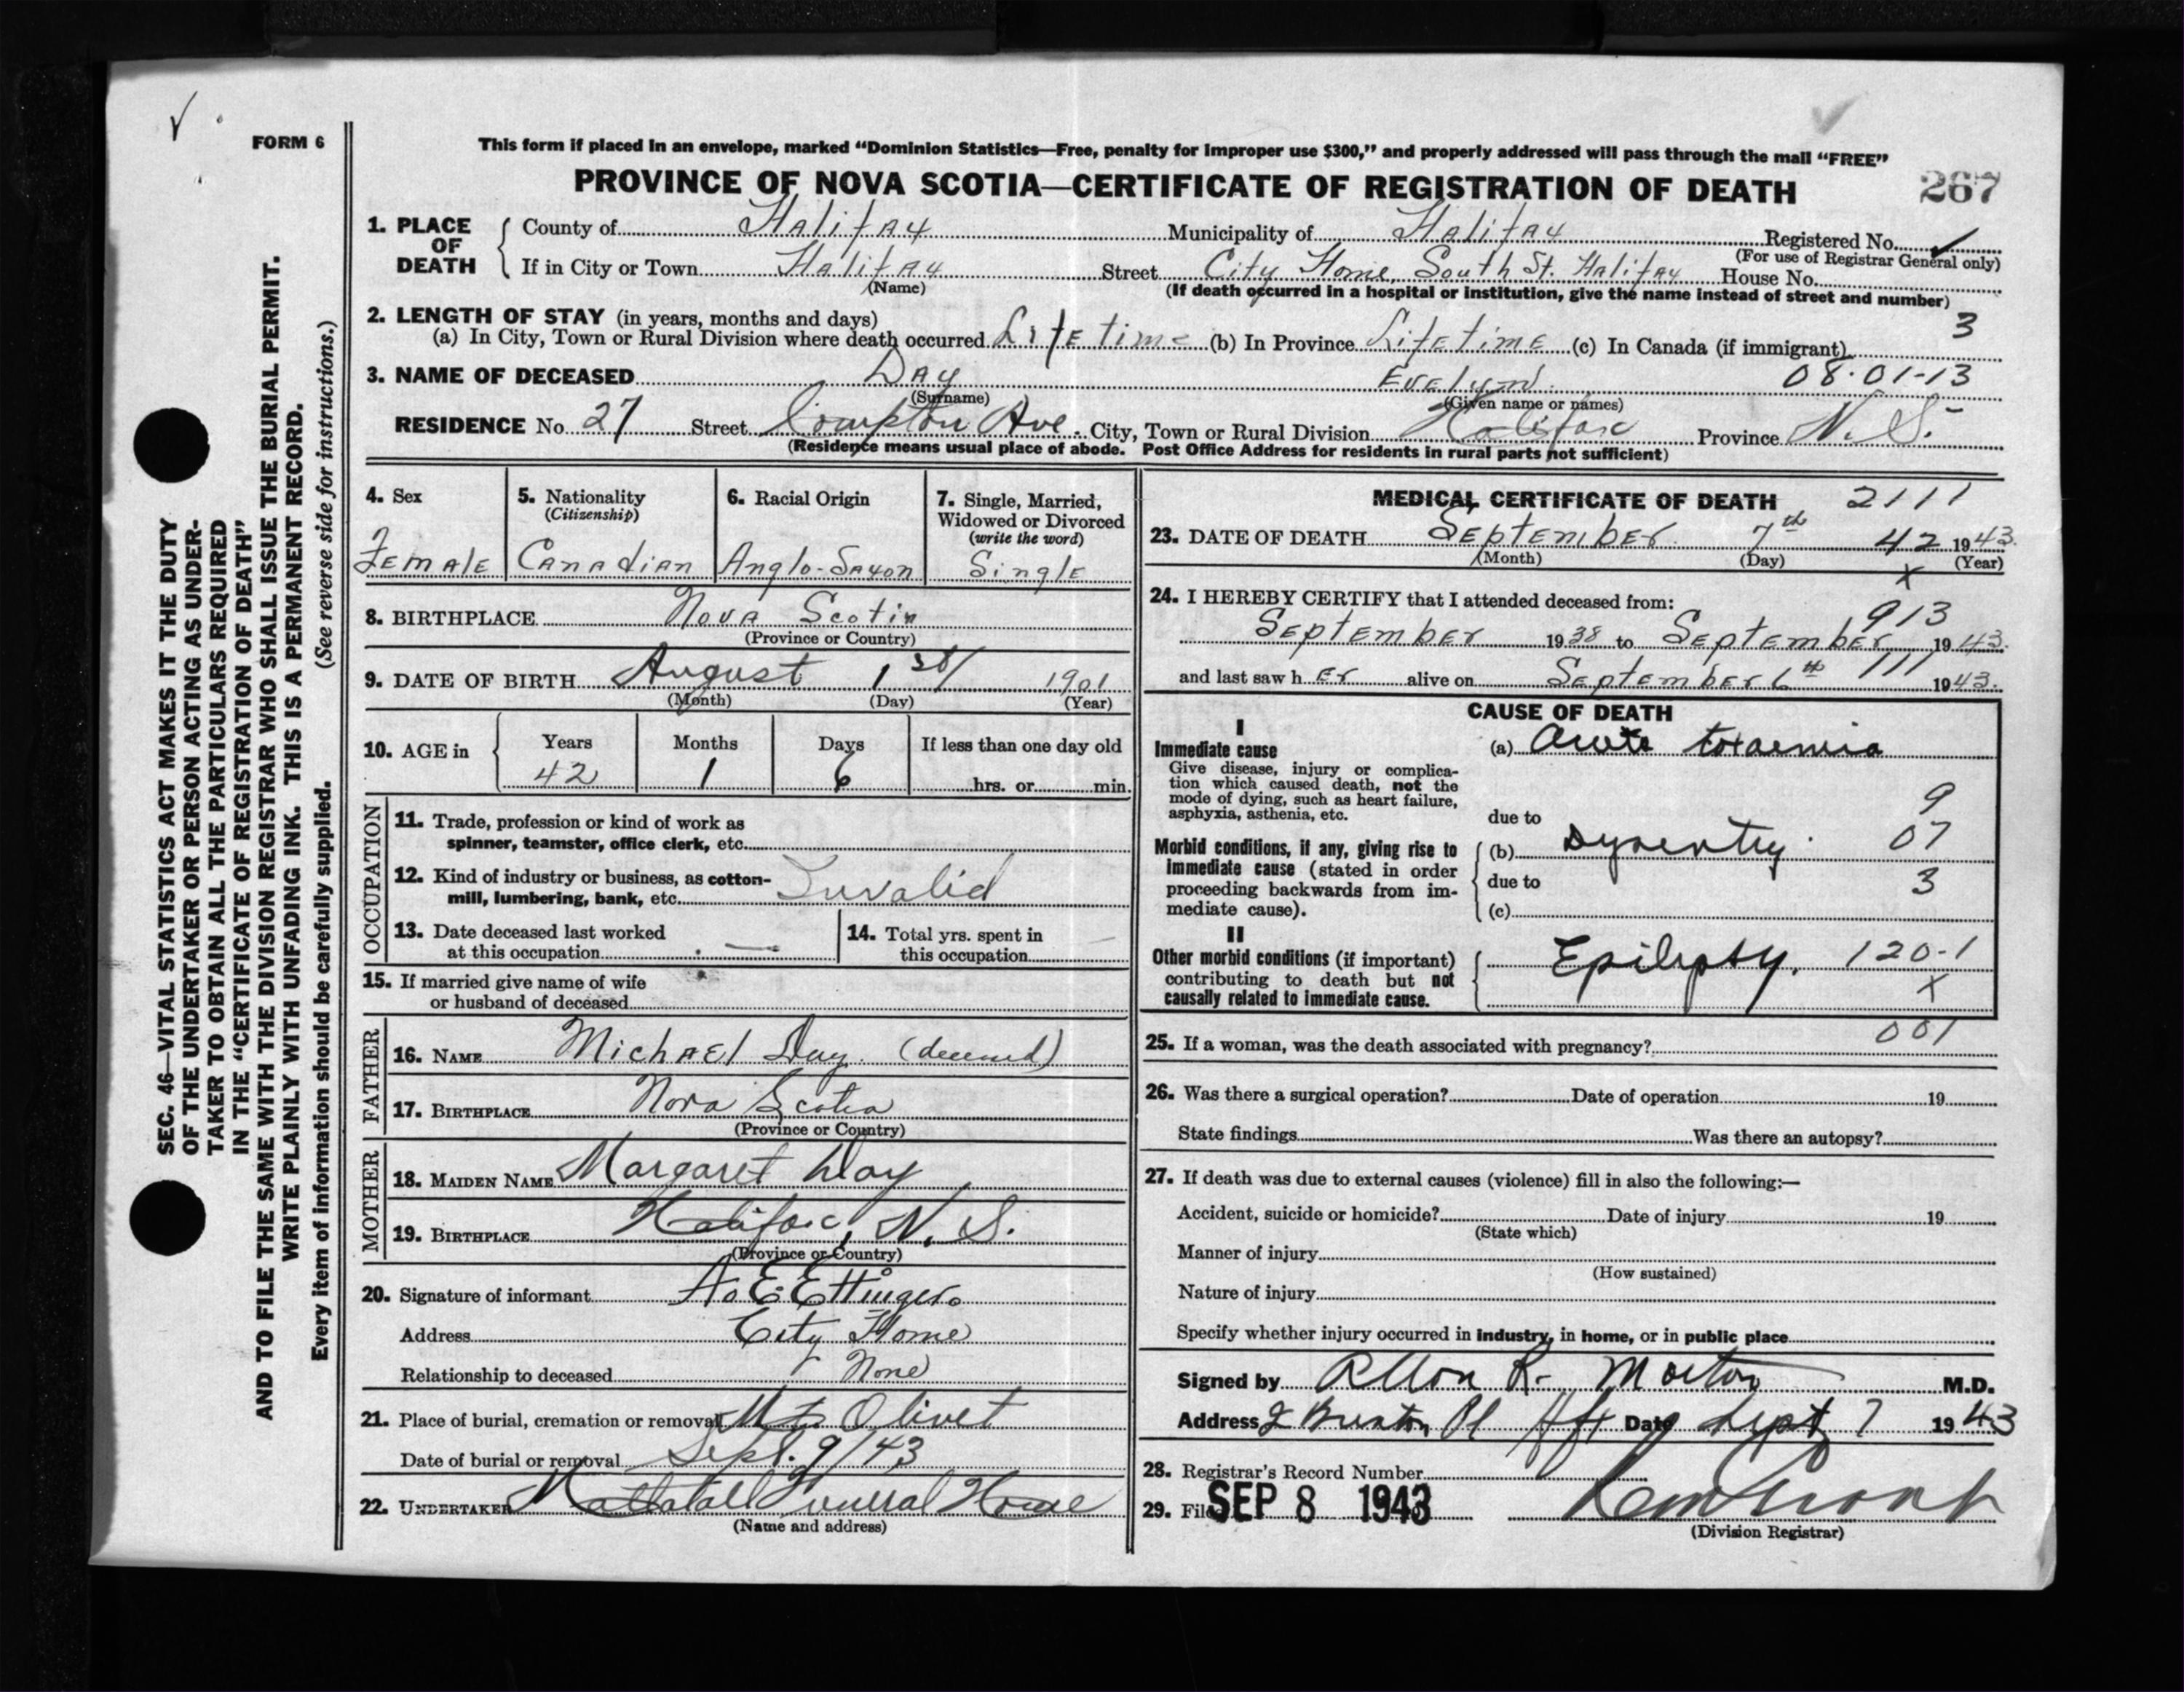 FORM 6
This form if placed in an envelope, marked “Dominion Statistics—Free, penalty for improper use $300,” and properly addressed will pass through the mail “FREE”
PROVINCE OF NOVA SCOTIA—CERTIFICATE OF REGISTRATION OF DEATH
267
1. PLACE OF DEATH
County of Halifax Municipality of Halifax Registered No.
(For use of Registrar General only)
If in City or Town Halifax Street City Home, South St. Halifax House No.
(Name) (If death occurred in a hospital or institution, give the name instead of street and number)
2. LENGTH OF STAY (in years, months and days) 3
(a) In City, Town or Rural Division where death occurred Lifetime (b) In Province Lifetime (c) In Canada (if immigrant)
3. NAME OF DECEASED Day Evelyn 08-01-13
(Surname) (Given name or names)
RESIDENCE No. 27 Street Compton Ave. City, Town or Rural Division Halifax Province N.S.
(Residence means usual place of abode. Post Office Address for residents in rural parts not sufficient)
4. Sex
Female
5. Nationality
(Citizenship)
Canadian
6. Racial Origin
Anglo-Saxon
7. Single, Married,
Widowed or Divorced
(write the word)
Single
8. BIRTHPLACE Nova Scotia
(Province or Country)
9. DATE OF BIRTH August 1st 1901
(Month) (Day) (Year)
10. AGE in
Years Months Days If less than one day old
42 1 6 hrs. or min.
OCCUPATION
11. Trade, profession or kind of work as
spinner, teamster, office clerk, etc.
12. Kind of industry or business, as cotton-
mill, lumbering, bank, etc. Invalid
13. Date deceased last worked
at this occupation —
14. Total yrs. spent in
this occupation —
15. If married give name of wife
or husband of deceased
FATHER
16. NAME Michael Day (deceased)
17. BIRTHPLACE Nova Scotia
(Province or Country)
MOTHER
18. MAIDEN NAME Margaret Day
19. BIRTHPLACE Halifax, N.S.
(Province or Country)
20. Signature of informant A. E. Ettinger
Address City Home
Relationship to deceased None
21. Place of burial, cremation or removal Mt. Olivet
Date of burial or removal Sept. 9/43
22. UNDERTAKER Mattatall Funeral Home
(Name and address)
MEDICAL CERTIFICATE OF DEATH 2111
23. DATE OF DEATH September 7th 42 1943
(Month) (Day) x (Year)
24. I HEREBY CERTIFY that I attended deceased from:
913
September 1938 to September 1943
and last saw her alive on September 6th 111 1943
CAUSE OF DEATH
I
Immediate cause (a) Acute toxaemia
Give disease, injury or complica-
tion which caused death, not the
mode of dying, such as heart failure,
asphyxia, asthenia, etc.
9
due to
Morbid conditions, if any, giving rise to
immediate cause (stated in order
proceeding backwards from im-
mediate cause).
(b) Dysentry 07
due to 3
(c)
II
Other morbid conditions (if important)
contributing to death but not
causally related to immediate cause.
Epilepsy. 120-1
x
001
25. If a woman, was the death associated with pregnancy?
26. Was there a surgical operation? Date of operation 19
State findings Was there an autopsy?
27. If death was due to external causes (violence) fill in also the following:—
Accident, suicide or homicide? Date of injury 19
(State which)
Manner of injury
(How sustained)
Nature of injury
Specify whether injury occurred in industry, in home, or in public place
Signed by Allon R. Morton M.D.
Address 2 Pl Hfx Date Sept 7 1943
28. Registrar's Record Number
29. Filed SEP 8 1943
(Division Registrar)
SEC. 46—VITAL STATISTICS ACT MAKES IT THE DUTY
OF THE UNDERTAKER OR PERSON ACTING AS UNDER-
TAKER TO OBTAIN ALL THE PARTICULARS REQUIRED
IN THE “CERTIFICATE OF REGISTRATION OF DEATH”
AND TO FILE THE SAME WITH THE DIVISION REGISTRAR WHO SHALL ISSUE THE BURIAL PERMIT.
WRITE PLAINLY WITH UNFADING INK. THIS IS A PERMANENT RECORD.
Every item of information should be carefully supplied. (See reverse side for instructions.)